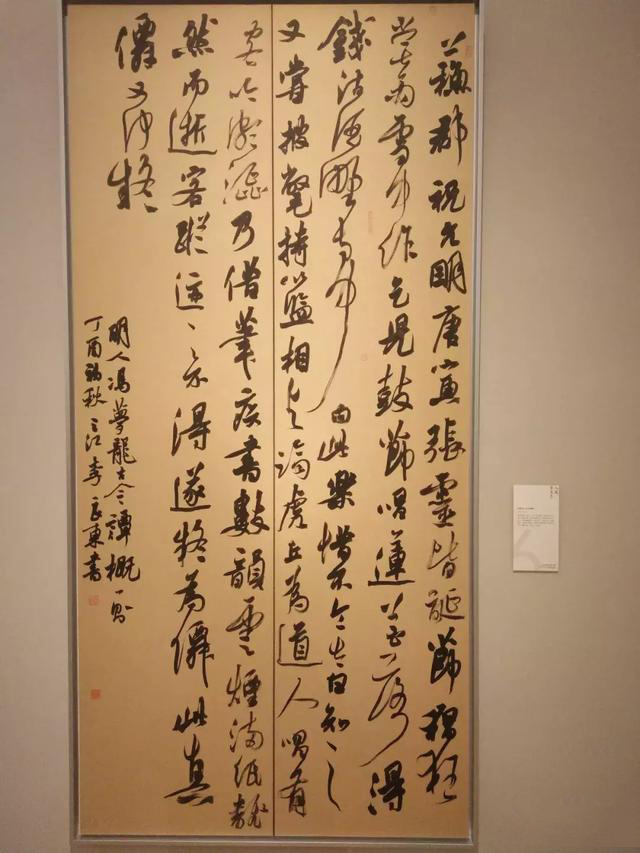 蘇郡祝允明唐寅張靈皆誕節猖狂
嘗雨雪中作乞兒鼓節唱蓮花落得
錢沽酒野寺中曰此樂惜不令太白知之
又嘗披氅持籃相與踏虎丘為道人唱有
客吟頗澀乃借筆疾書數韻雲煙滿紙翩
然而逝客蹤迹之不得遂疑為僊此真
僊又何疑
明人馮夢龍古今譚概一則
丁酉初秋之江李良東書